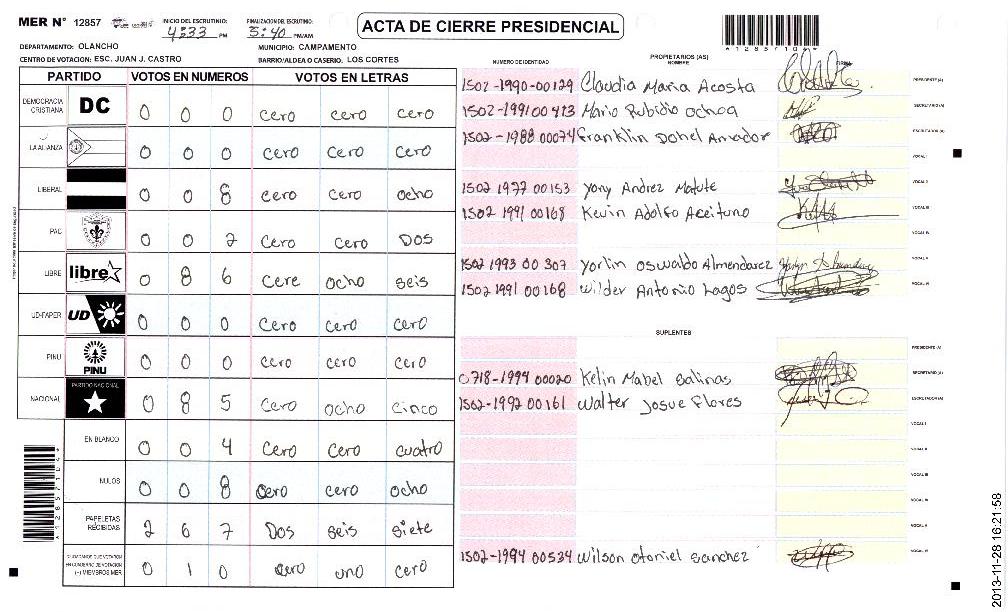 MER Nº 12857
INICIO DEL ESCRUTINIO: 4:33 PM
FINALIZACION DEL ESCRUTINIO: 5:40 PM/AM
ACTA DE CIERRE PRESIDENCIAL
*12857104*
DEPARTAMENTO: OLANCHO
MUNICIPIO: CAMPAMENTO
CENTRO DE VOTACION: ESC. JUAN J. CASTRO
BARRIO/ALDEA O CASERIO. LOS CORTES
PARTIDO VOTOS EN NUMEROS VOTOS EN LETRAS
DEMOCRACIA CRISTIANA DC 0 0 0 cero cero cero
LA ALIANZA 0 0 0 cero cero cero
LIBERAL 0 0 8 cero cero ocho
PAC 0 0 2 cero cero DOS
LIBRE libre 0 8 6 cere ocho seis
UD-FAPER UD 0 0 0 cero cero cero
PINU PINU 0 0 0 cero cero cero
NACIONAL PARTIDO NACIONAL 0 8 5 cero ocho cinco
EN BLANCO 0 0 4 cero cero cuatro
NULOS 0 0 8 cero cero ocho
PAPELETAS RECIBIDAS 2 6 7 Dos seis siete
CIUDADANOS QUE VOTARON EN CUADERNO DE VOTACION (+) MIEMBROS MER 0 1 0 cero uno cero
*12857104*
NUMERO DE IDENTIDAD
PROPIETARIOS (AS)
NOMBRE
FIRMA
1502-1990-00129 Claudia Maria Acosta PRESIDENTE(A)
1502-1991 00413 Mario Rubidio ochoa SECRETARIO (A)
1502-1988 00074 Franklin Donel Amador ESCRUTADOR (A)
VOCAL I
1502 1977 00153 Yony Andrez Matute VOCAL II
1502 1991 00168 Kevin Adolfo Aceituno VOCAL III
VOCAL IV
1502 1993 00 307 Yorlin oswaldo Almendarez VOCAL V
1502 1991 00168 Wilder Antonio Lagos VOCAL VI
SUPLENTES
PRESIDENTE (A)
0718-1994 00020 Kelin Mabel Salinas SECRETARIO (A)
1502-1992 00161 Walter Josue Flores ESCRUTADOR (A)
VOCAL I
VOCAL II
VOCAL III
VOCAL IV
VOCAL V
1502-1994 00534 Wilson otoniel sanchez VOCAL VI
2013-11-28 16:21:58